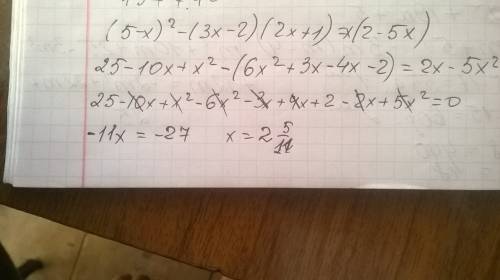 (5-x)² -(3x-2)(2x+1)=x(2-5x)
25-10x+x²-(6x²+3x-4x-2)=2x-5x²
25-10x+x²-6x²-3x+4x+2-2x+5x²=0
-11x = -27 x = 2 5/11